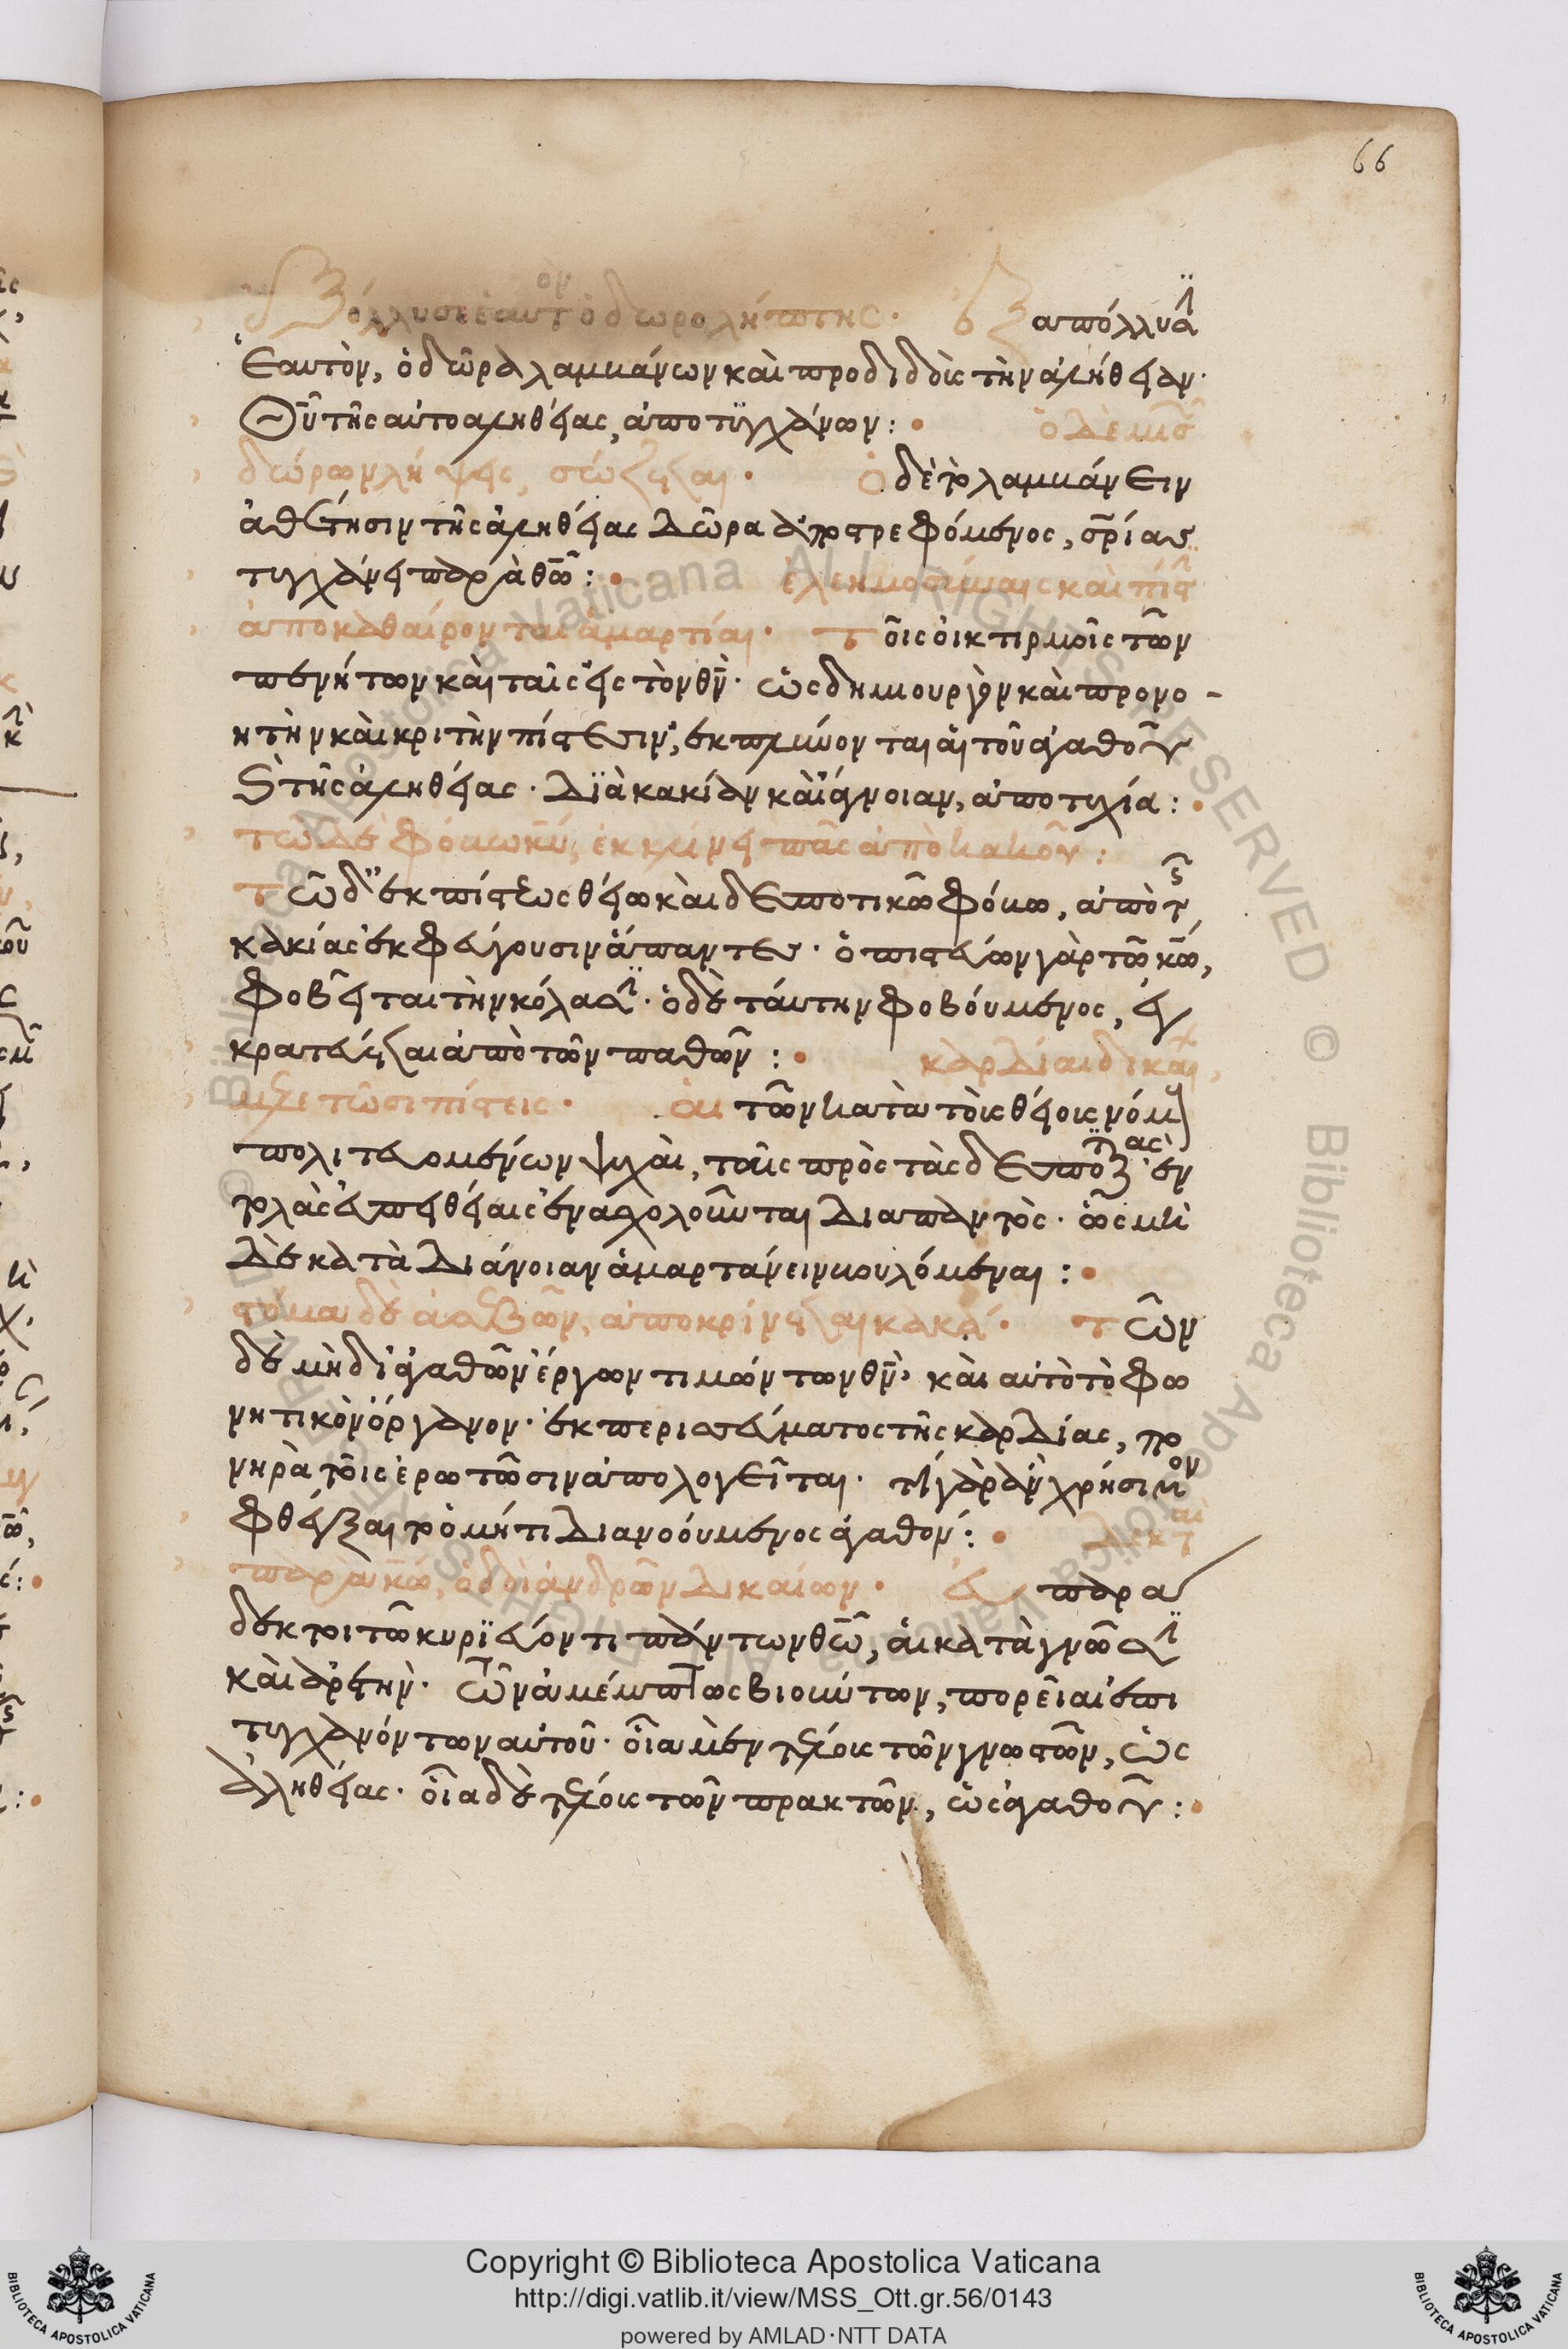 66
ἐξόλλυσιν ἑαυτὸν ὁ δωρολήπτης· ἐξαπόλλυσιν
ἑαυτὸν, ὁ δῶρα λαμβάνων καὶ προδιδοὺς τὴν ἀλήθειαν·
Θῦ τῆς αὐτοαληθείας, ἀποτυγχάνων: ὁ δὲ μισῶν
δώρων λήψεις, σώζεται· ὁ δὲ τὸ λαμβάνειν
ἀθέτησιν τῆς ἀληθείας δῶρα ἀποστρεφόμενος, σρίας
τυγχάνει παρὰ θῶ: ἐλεημοσύναις καὶ πίστεσιν
ἀποκαθαίρονται ἁμαρτίαι· τοῖς οἰκτιρμοῖς τῶν
πενήτων καὶ ταῖς εἰς τὸν θν· ὡς δημιουργὸν καὶ προνο-
ητὴν καὶ κριτὴν πίστεσιν, ἐκπλύνονται αἱ τοῦ ἀγαθοῦ
καὶ τῆς ἀληθείας· διὰ κακίαν καὶ ἄγνοιαν, ἀποτυχίαι:
τῶ δὲ φόβω κυ, ἐκκλίνει πᾶς ἀπὸ κακοῦ:
τῶ δ' ἐκ πίστεως θείω καὶ δεσποτικῶ φόβω, ἀπὸ τῆς
κακίας ἐκφεύγουσιν ἅπαντες· ὁ πιστεύων γὰρ τῶ κω,
φοβεῖται τὴν κόλασιν· ὁ δὲ ταύτην φοβούμενος, ἐγ
κρατεύεται ἀπὸ τῶν παθῶν: καρδίαι δικαίων
μελετῶσι πίστεις· αἱ τῶν κατὰ τοὺς θείους νόμους
πολιτευομένων ψυχαὶ, ταῖς πρὸς τὰς δεσποτικὰς ἐν
τολὰς εὐπειθείαις ἐνασχολοῦνται διαπαντός· ὡς μη
δὲ κατὰ διάνοιαν ἁμαρτάνειν βουλόμεναι:
στόμα δὲ ἀσεβῶν, ἀποκρίνεται κακά· τῶν
δὲ μὴ δι' ἀγαθῶν ἔργων τιμώντων θν, καὶ αὐτὸ τὸ φω
νητικὸν ὄργανον· ἐκ περισσεύματος τῆς καρδίας, πο
νηρὰ τοῖς ἐρωτῶσιν ἀπολογεῖται· τί γὰρ ἂν χρήσιμον
φθέγξαιτο ὁ μήτι διανοούμενος ἀγαθόν: δεκταὶ
παρὰ κω, ὁδοὶ ἀνδρῶν δικαίων· εὐπαρά
δεκτοι τῶ κυριεύοντι πάντων θῶ, αἱ κατὰ γνῶσιν
καὶ ἀρετὴν· τῶν ἀμέμπτως βιούντων, πορεῖαι ἐπι
τυγχανόντων αὐτοῦ· οἷα μὲν τέλους τῶν γνωστῶν, ὡς
ἀληθείας· οἷα δὲ τέλους τῶν πρακτῶν, ὡς ἀγαθοῦ:
Copyright © Biblioteca Apostolica Vaticana
http://digi.vatlib.it/view/MSS_Ott.gr.56/0143
powered by AMLAD·NTT DATA